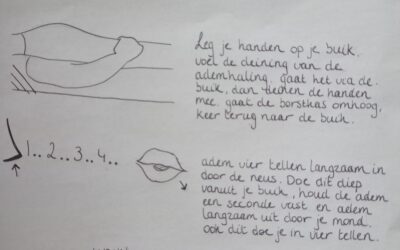 Leg je handen op je buik.
voel de deining van de
ademhaling. gaat het via de.
buik, dan deinen de handen
mee. gaat de borstkas omhoog,
keer terug naar de buik.
1..2..3..4..
adem vier tellen langzaam in
door de neus. Doe dit diep
vanuit je buik, houd de adem
een seconde vast en adem
langzaam uit door je mond.
ook dit doe je in vier tellen.